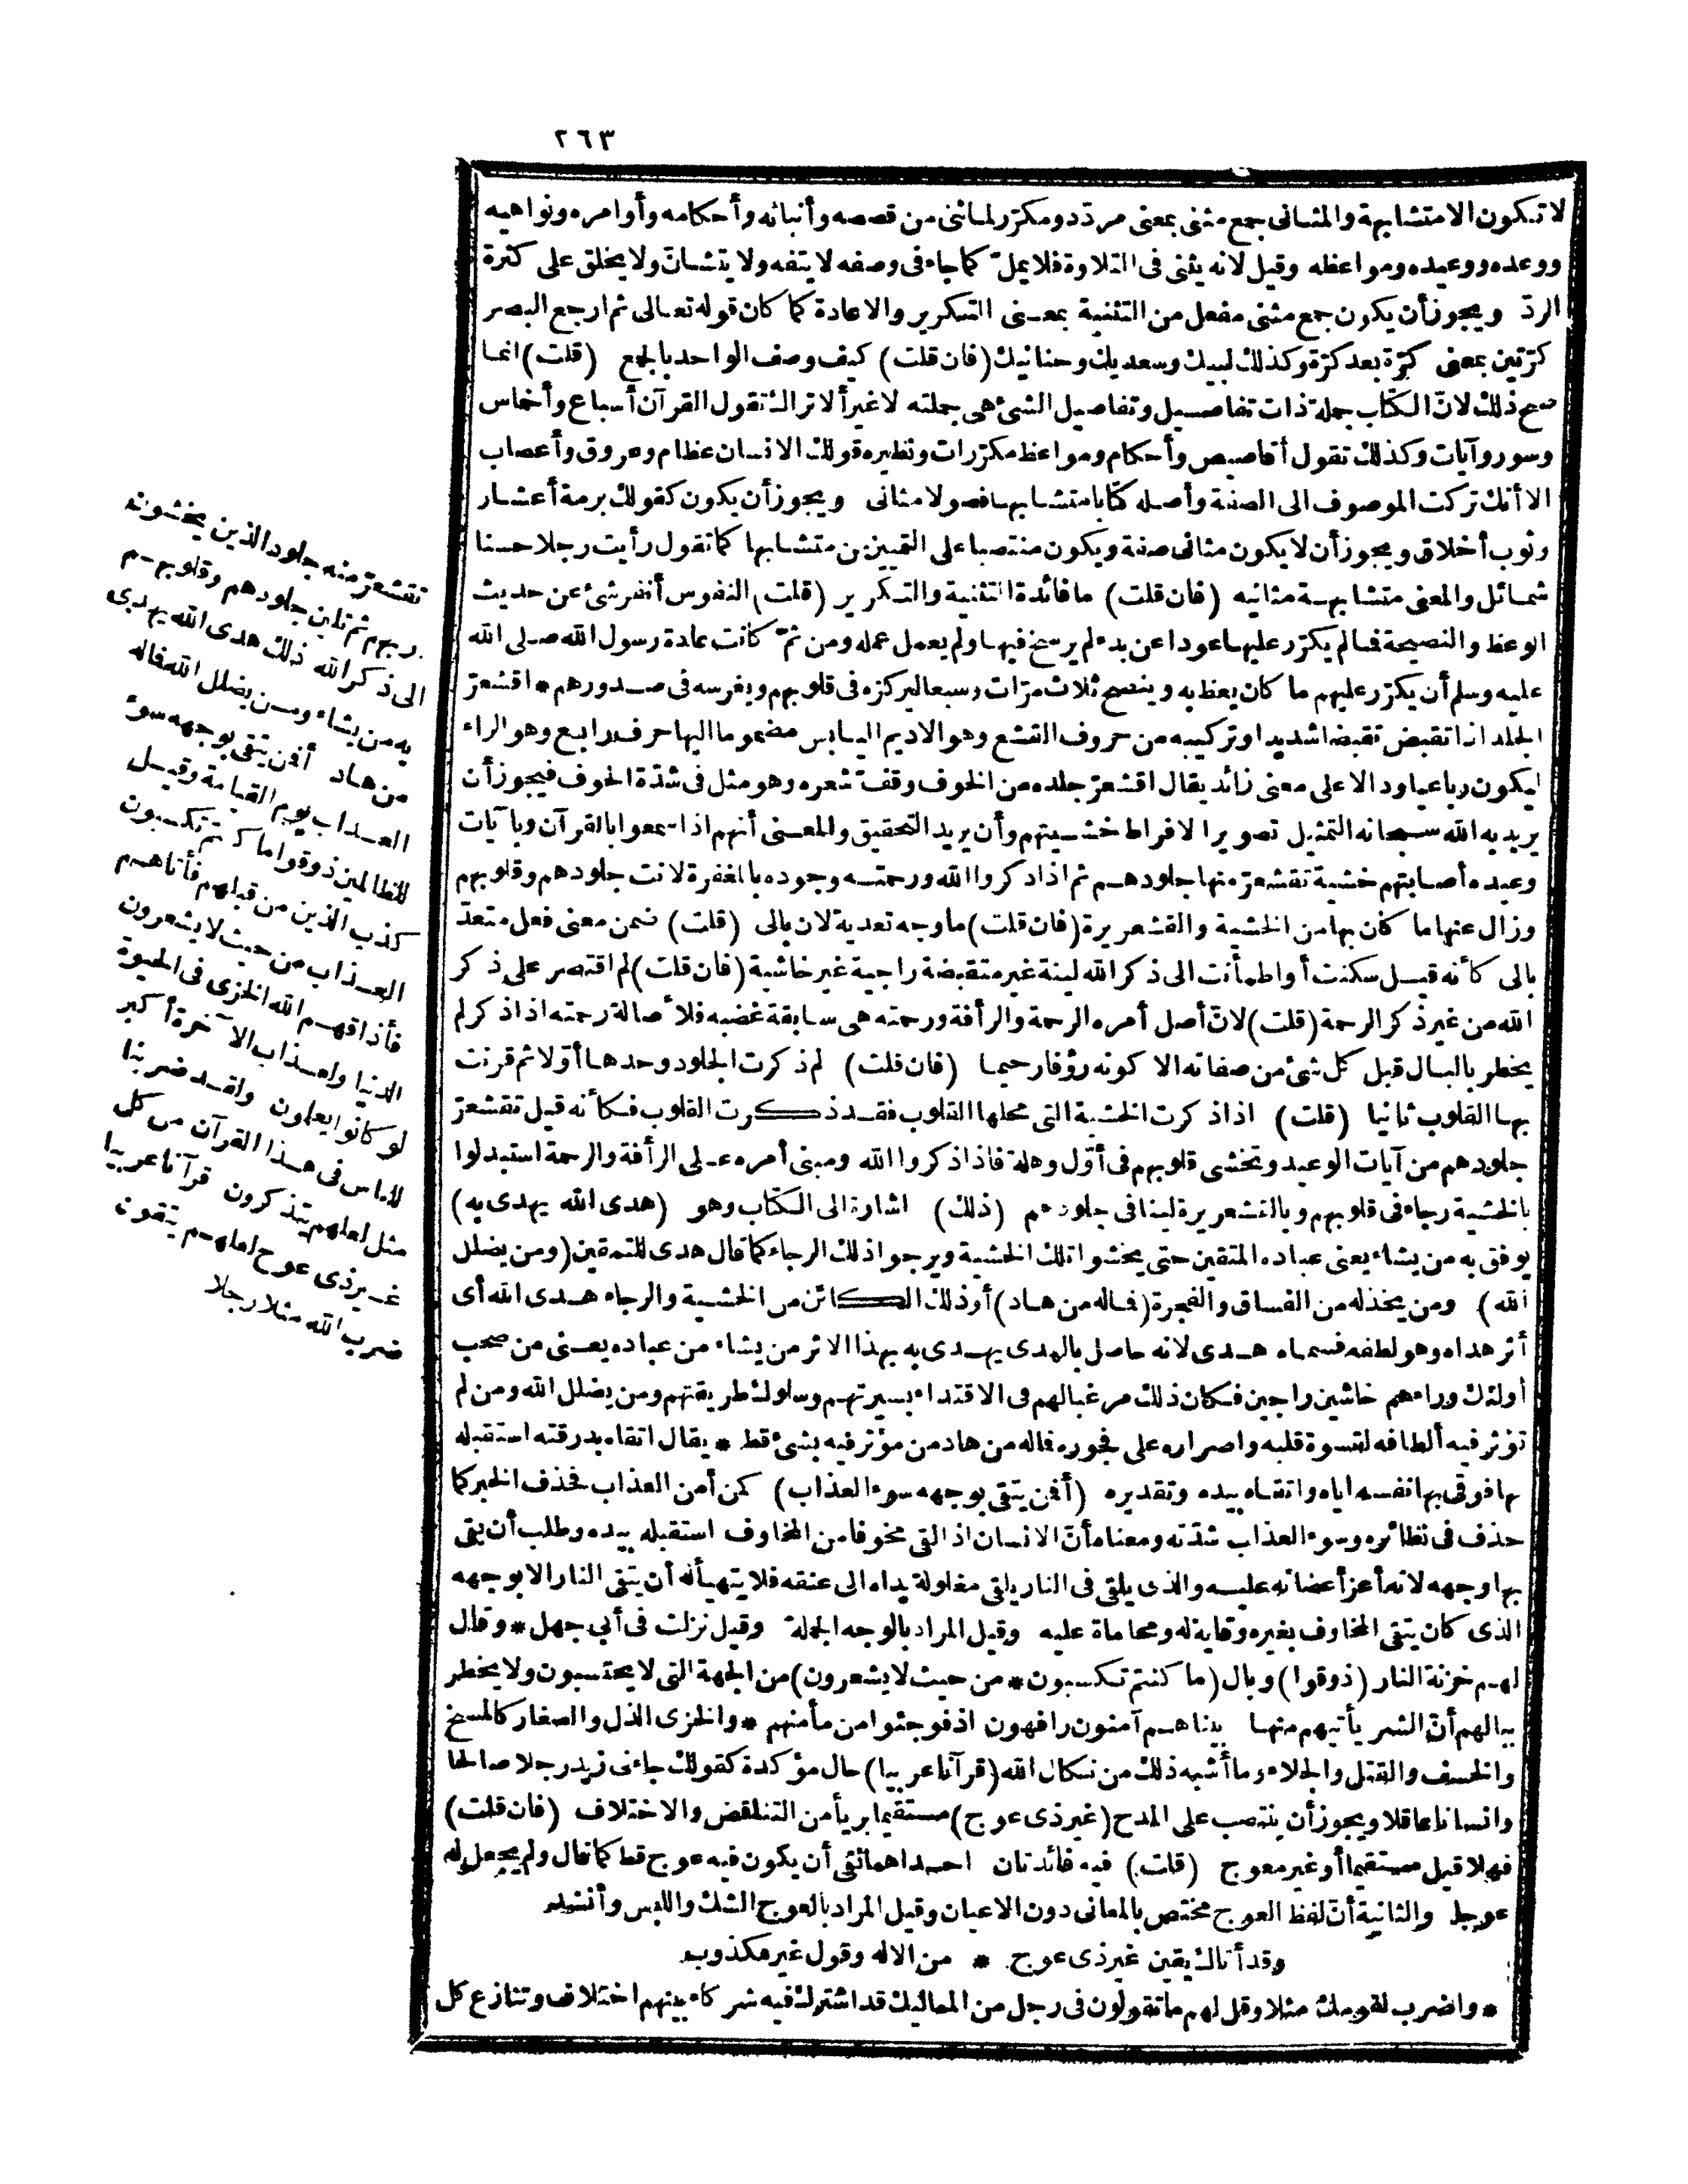 ٢٦٣
لا تكون الا متشابهة والمثانى جمع مثنى بمعنى مردّد ومكرّر لما ثنى من قصصه وأنبائه وأحكامه وأوامره ونواهيه
ووعده ووعيده ومواعظه وقيل لانه يثنى فى التلاوة فلا يملّ كما جاء فى وصفه لا يتفه ولا يتشانّ ولا يخلق على كثرة
الردّ ويجوز أن يكون جمع مثنى مفعل من التثنية بمعنى التكرير والاعادة كما كان قوله تعالى ثم ارجع البصر
كرّتين بمعنى كرّة بعد كرّة وكذلك لبيك وسعديك وحنانيك (فان قلت) كيف وصف الواحد بالجمع (قلت) انما
صح ذلك لانّ الكتاب جملة ذات تفاصيل وتفاصيل الشئ هى جملته لا غير ألا تراك تقول القرآن أسباع وأخماس
وسور وآيات وكذلك تقول أقاصيص وأحكام ومواعظ مكرّرات ونظيره قولك الانسان عظام وعروق وأعصاب
الا أنك تركت الموصوف الى الصفة وأصله كتابا متشابها فصولا مثانى ويجوز أن يكون كقولك برمة أعشار
وثوب أخلاق ويجوز أن لا يكون مثانى صفة ويكون منتصبا على التمييز من متشابها كما تقول رأيت رجلا حسنا
شمائل والمعنى متشابهة مثانيه (فان قلت) ما فائدة التثنية والتكرير (قلت) النفوس أنفر شئ عن حديث
الوعظ والنصيحة فما لم يكرّر عليها عودا عن بدء لم يرسخ فيها ولم يعمل عمله ومن ثمّ كانت عادة رسول الله صلى الله
عليه وسلم أن يكرّر عليهم ما كان يعظ به وينصح ثلاث مرّات وسبعا ليركزه فى قلوبهم ويغرسه فى صدورهم * اقشعرّ
الجلد اذا تقبض تقبضا شديدا وتركيبه من حروف القشع وهو الاديم اليابس مضموما اليها حرف رابع وهو الراء
ليكون رباعيا ودالا على معنى زائد يقال اقشعرّ جلده من الخوف وقفّ شعره وهو مثل فى شدّة الخوف فيجوز أن
يريد به الله سبحانه التمثيل تصويرا لافراط خشيتهم وأن يريد التحقيق والمعنى أنهم اذا سمعوا بالقرآن وبآيات
وعيده أصابتهم خشية تقشعرّ منها جلودهم ثم اذا ذكروا الله ورحمته وجوده بالمغفرة لانت جلودهم وقلوبهم
وزال عنها ما كان بها من الخشية والقشعريرة (فان قلت) ما وجه تعدية لان بالى (قلت) ضمن معنى فعل متعدّ
بالى كأنه قيل سكنت أو اطمأنت الى ذكر الله لينة غير متقبضة راجية غير خاشية (فان قلت) لم اقتصر على ذكر
الله من غير ذكر الرحمة (قلت) لانّ أصل أمره الرحمة والرأفة ورحمته هى سابقة غضبه فلأصالة رحمته اذا ذكر لم
يخطر بالبال قبل كل شئ من صفاته الا كونه رؤفا رحيما (فان قلت) لم ذكرت الجلود وحدها أوّلا ثم قرنت
بها القلوب ثانيا (قلت) اذا ذكرت الخشية التى محلها القلوب فقد ذكرت القلوب فكأنه قيل تقشعرّ
جلودهم من آيات الوعيد وتخشى قلوبهم فى أوّل وهلة فاذا ذكروا الله ومبنى أمره على الرأفة والرحمة استبدلوا
بالخشية رجاء فى قلوبهم وبالقشعريرة لينا فى جلودهم (ذلك) اشارة الى الكتاب وهو (هدى الله يهدى به)
يوفق به من يشاء يعنى عباده المتقين حتى يخشوا تلك الخشية ويرجوا ذلك الرجاء كما قال هدى للمتقين (ومن يضلل
الله) ومن يخذله من الفساق والفجرة (فما له من هاد) أو ذلك الكائن من الخشية والرجاء هدى الله أى
أثر هداه وهو لطفه فسماه هدى لانه حاصل بالهدى يهدى به بهذا الاثر من يشاء من عباده يعنى من صحب
أولئك ورآهم خاشين راجين فكان ذلك مرغبا لهم فى الاقتداء بسيرتهم وسلوك طريقتهم ومن يضلل الله ومن لم
تؤثر فيه ألطافه لقسوة قلبه واصراره على فجوره فما له من هاد من مؤثر فيه بشئ قط * يقال اتقاه بدرقته استقبله
بها فوقى بها نفسه اياه واتقاه بيده وتقديره (أفمن يتقى بوجهه سوء العذاب) كمن أمن العذاب فحذف الخبر كما
حذف فى نظائره وسوء العذاب شدّته ومعناه أنّ الانسان اذا لقى مخوفا من المخاوف استقبله بيده وطلب أن يقى
بها وجهه لانه أعز أعضائه عليه والذى يلقى فى النار يلقى مغلولة يداه الى عنقه فلا يتهيأ له أن يتقى النار الا بوجهه
الذى كان يتقى المخاوف بغيره وقاية له ومحاماة عليه وقيل المراد بالوجه الجملة وقيل نزلت فى أبى جهل * وقال
لهم خزنة النار (ذوقوا) وبال (ما كنتم تكسبون * من حيث لا يشعرون) من الجهة التى لا يحتسبون ولا يخطر
ببالهم أنّ الشر يأتيهم منها بيناهم آمنون رافهون اذ فوجئوا من مأمنهم * والخزى الذل والصغار كالمسخ
والخسف والقتل والجلاء وما أشبه ذلك من نكال الله (قرآنا عربيا) حال مؤكدة كقولك جاءنى زيد رجلا صالحا
وانسانا عاقلا ويجوز أن ينتصب على المدح (غير ذى عوج) مستقيما بريأ من التناقض والاختلاف (فان قلت)
فهلا قيل مستقيما أو غير معوج (قلت) فيه فائدتان احداهما نفى أن يكون فيه عوج قط كما قال ولم يجعل له
عوجا والثانية أنّ لفظ العوج مختص بالمعانى دون الاعيان وقيل المراد بالعوج الشك واللبس وأنشد
وقد أتاك يقين غير ذى عوج * من الاله وقول غير مكذوب
* واضرب لقومك مثلا وقل لهم ما تقولون فى رجل من المماليك قد اشترك فيه شركاء بينهم اختلاف وتنازع كل
تقشعرّ منه جلود الذين يخشون
ربهم ثم تلين جلودهم وقلوبهم
الى ذكر الله ذلك هدى الله يهدى
به من يشاء ومن يضلل الله فما له
من هاد أفمن يتقى بوجهه سوء
العذاب يوم القيامة وقيل
للظالمين ذوقوا ما كنتم تكسبون
كذب الذين من قبلهم فأتاهم
العذاب من حيث لا يشعرون
فأذاقهم الله الخزى فى الحيوة
الدنيا ولعذاب الآخرة أكبر
لو كانوا يعلمون ولقد ضربنا
للناس فى هذا القرآن من كل
مثل لعلهم يتذكرون قرآنا عربيا
غير ذى عوج لعلهم يتقون
ضرب الله مثلا رجلا